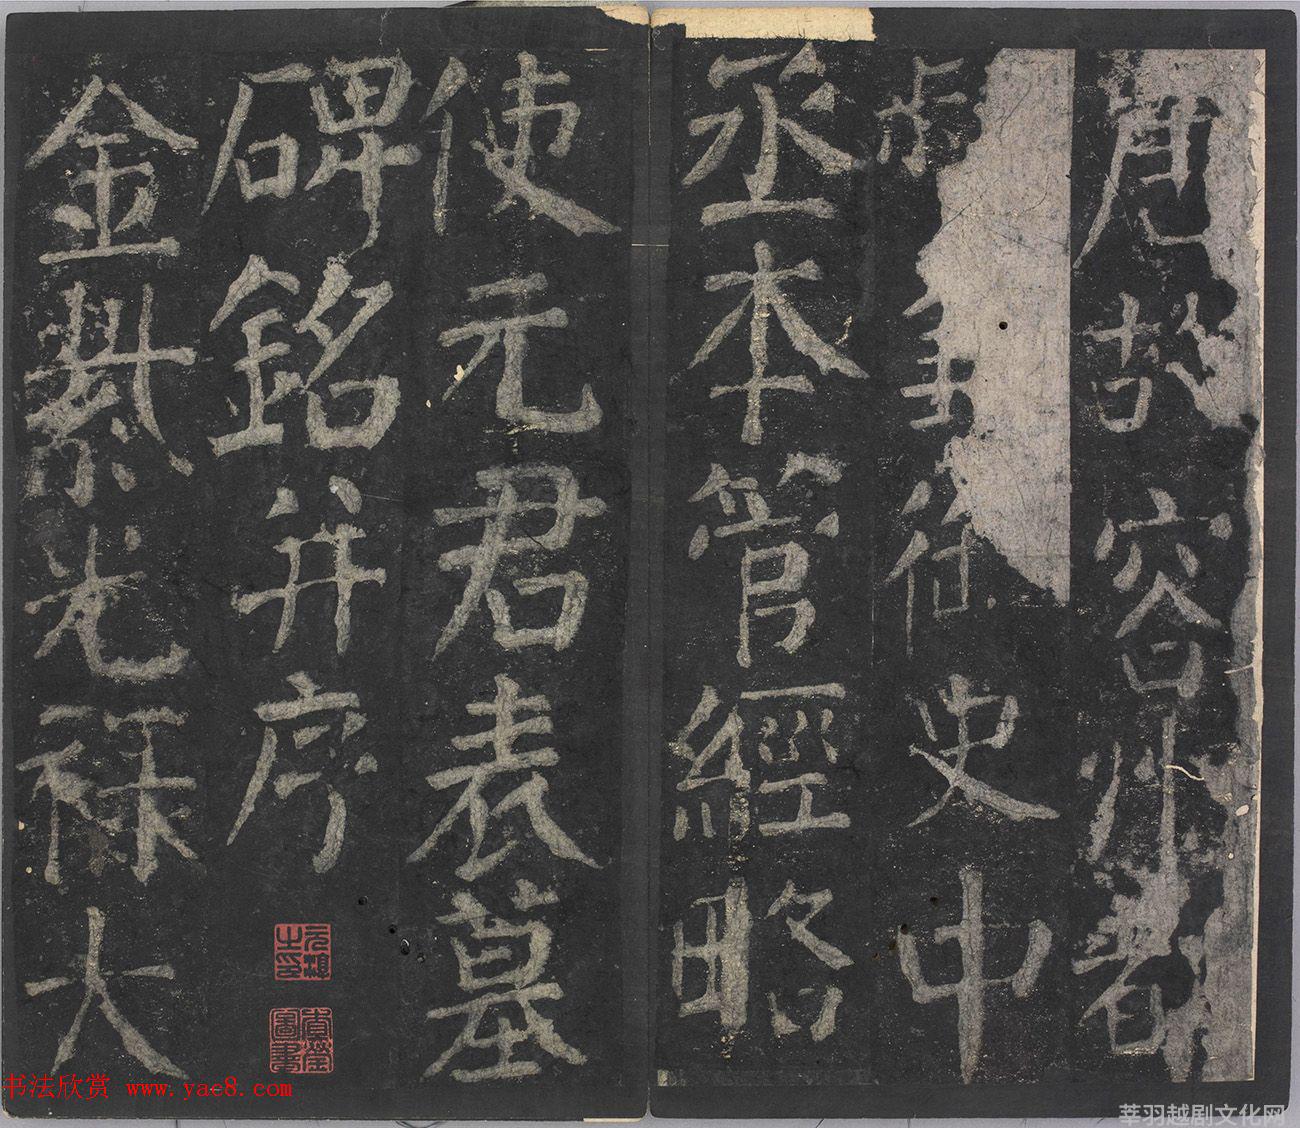 唐故容州都
御史中
丞本管經略
使元君表墓
碑銘并序
金紫光祿大
书法欣赏 www.yac8.com
莘羽越剧文化网